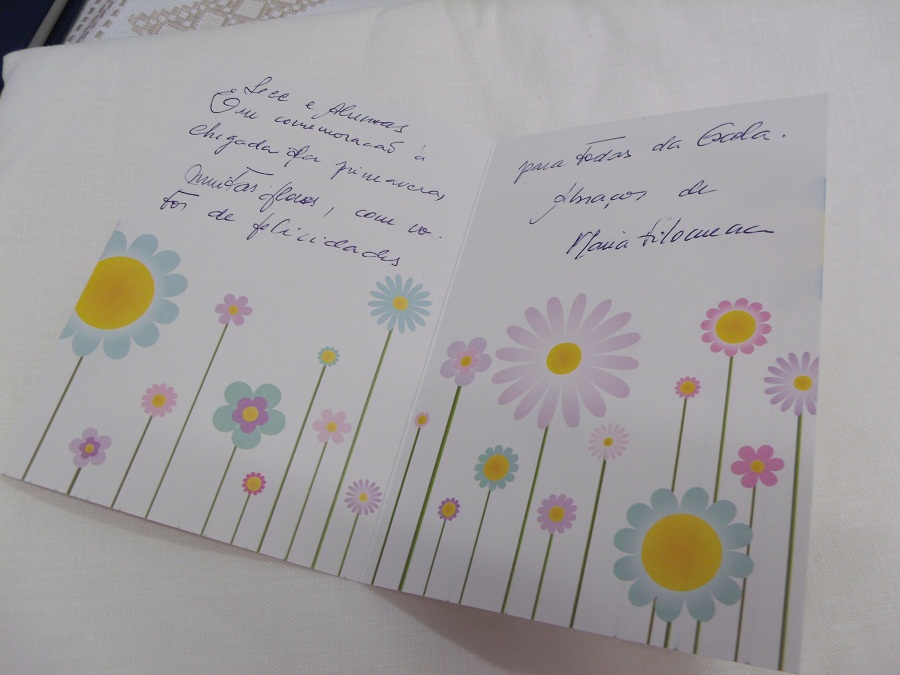 e Alunas
Em comemoração à
chegada da primavera,
muitas flores, com vo-
tos de felicidades
para todas da Escola.
Abraços de
Maria Filomena